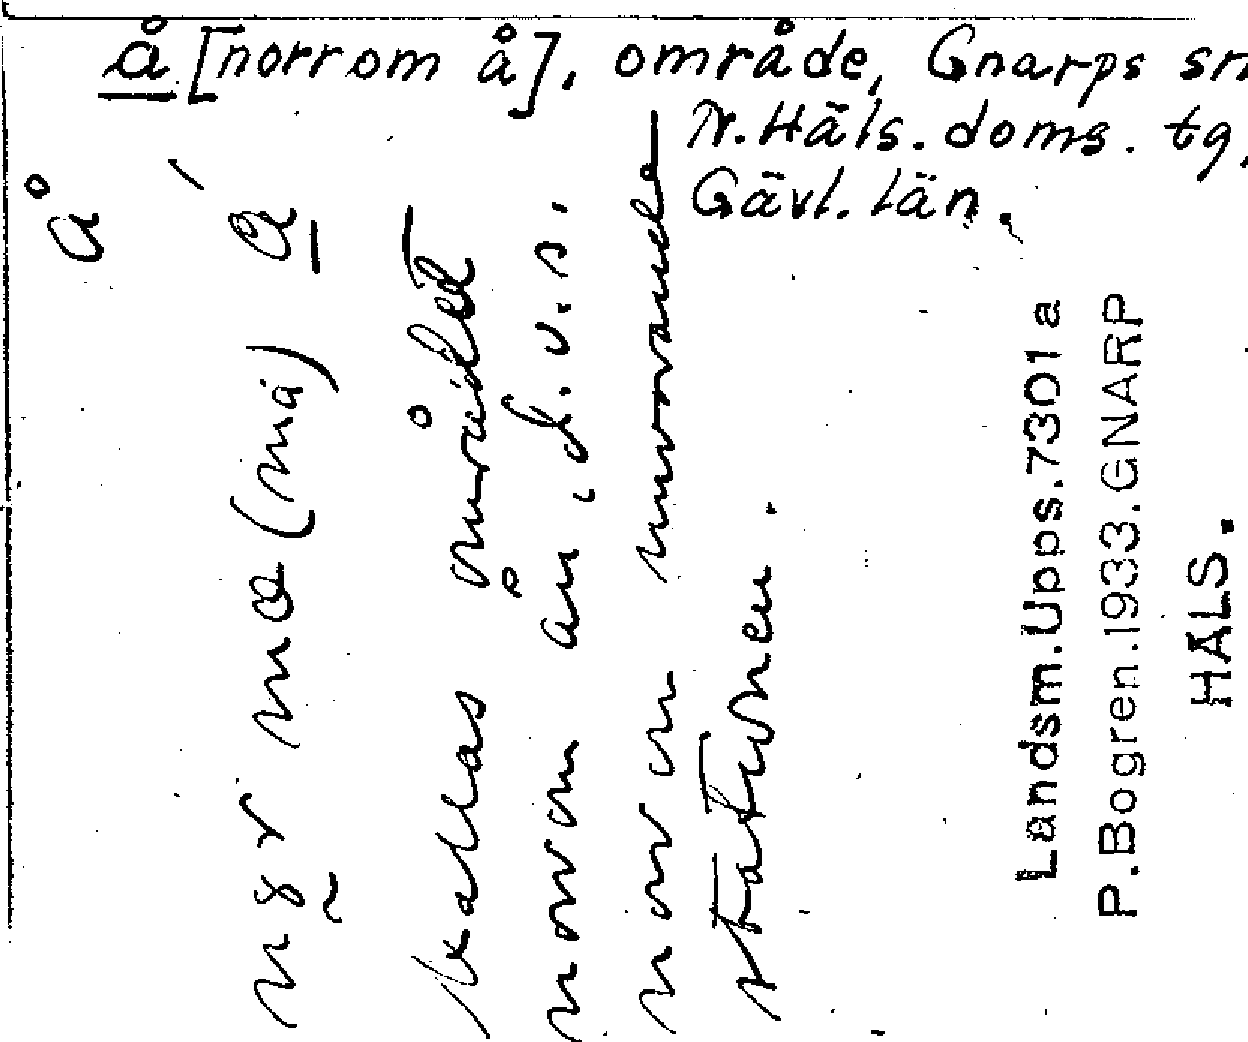 å [norrom å], område, Gnarps sn
N. Häls. doms. tg,
Gävl. län.
å
(må)
kallas området
norr om ån, d. v. s.
norr om nuvarande
stationen.
Landsm. Upps. 7301 a
P. Bogren. 1933. GNARP
HÄLS.